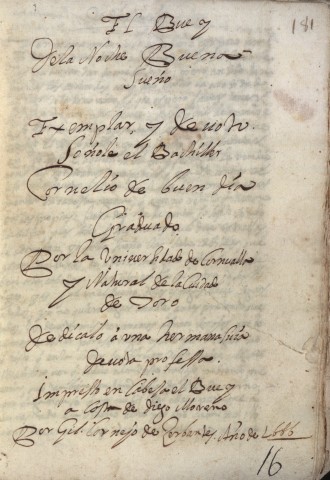 181
El Buey
de la Noche Buena
sueño
Exemplar, y devoto
Soñole el Bachiller
Cornelio de buen dia
Graduado
Por la Universidad de Cornualla
y Natural de la Ciudad
de Toro
dedicalo à una hermana suia
devota professa
Impresso en Cabesa el Buey
a costa de Diego Moreno
Por Gil Cornejo de Cerbantes. Año de 1666
16